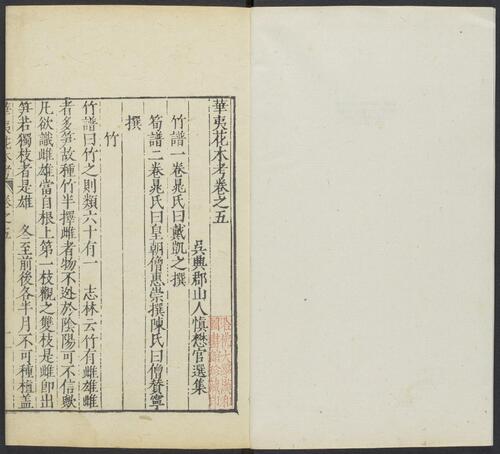 華夷花木考卷之五
吳興郡山人愼懋官選集
竹譜一卷晁氏曰戴凱之撰
筍譜二卷晁氏曰皇朝僧惠崇撰陳氏曰僧贊寧
撰
竹
竹譜曰竹之則類六十有一 志林云竹有雌雄雌
者多笋故種竹半擇雌者物不迯於陰陽可不信歟
凡欲識雌雄當自根上第一枝觀之雙枝是雌卽出
笋若獨枝者是雄 冬至前後各半月不可種植盖
華夷花木考 卷之五